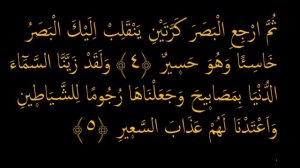 ثُمَّ ارْجِعِ الْبَصَرَ كَرَّتَيْنِ يَنْقَلِبْ إِلَيْكَ الْبَصَرُ
خَاسِئًا وَهُوَ حَسِيرٌ ﴿٤﴾ وَلَقَدْ زَيَّنَّا السَّمَاءَ
الدُّنْيَا بِمَصَابِيحَ وَجَعَلْنَاهَا رُجُومًا لِلشَّيَاطِينِ
وَأَعْتَدْنَا لَهُمْ عَذَابَ السَّعِيرِ ﴿٥﴾